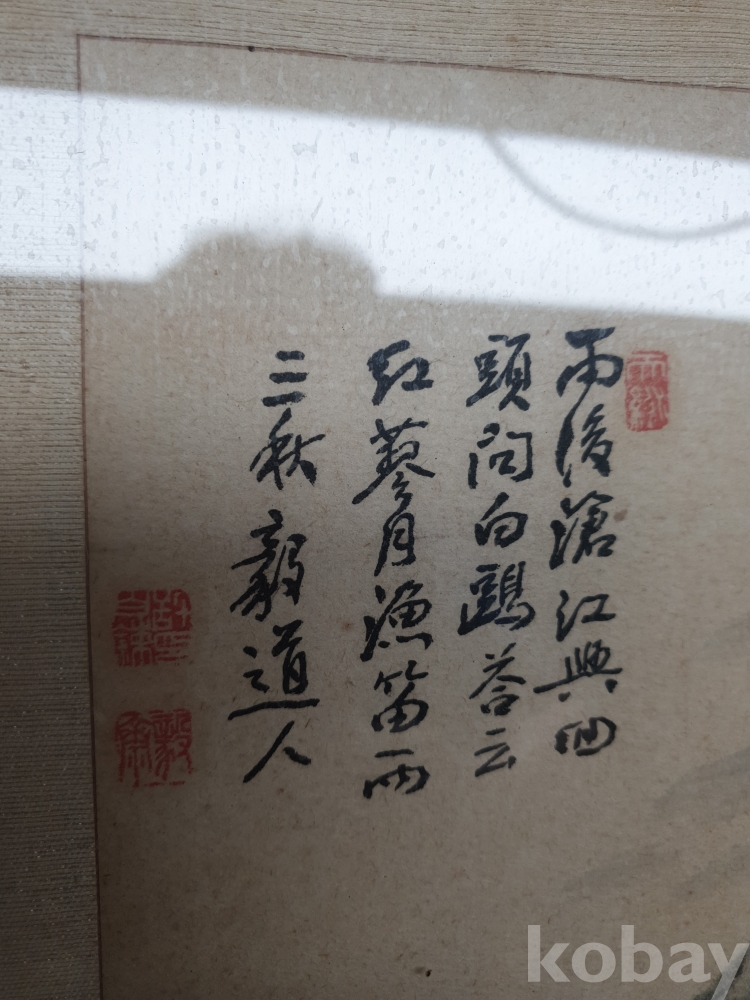 雨後滄江興回
頭問白鷗荅云
紅蓼月漁笛兩
三秋毅道人
毅齋
kobay